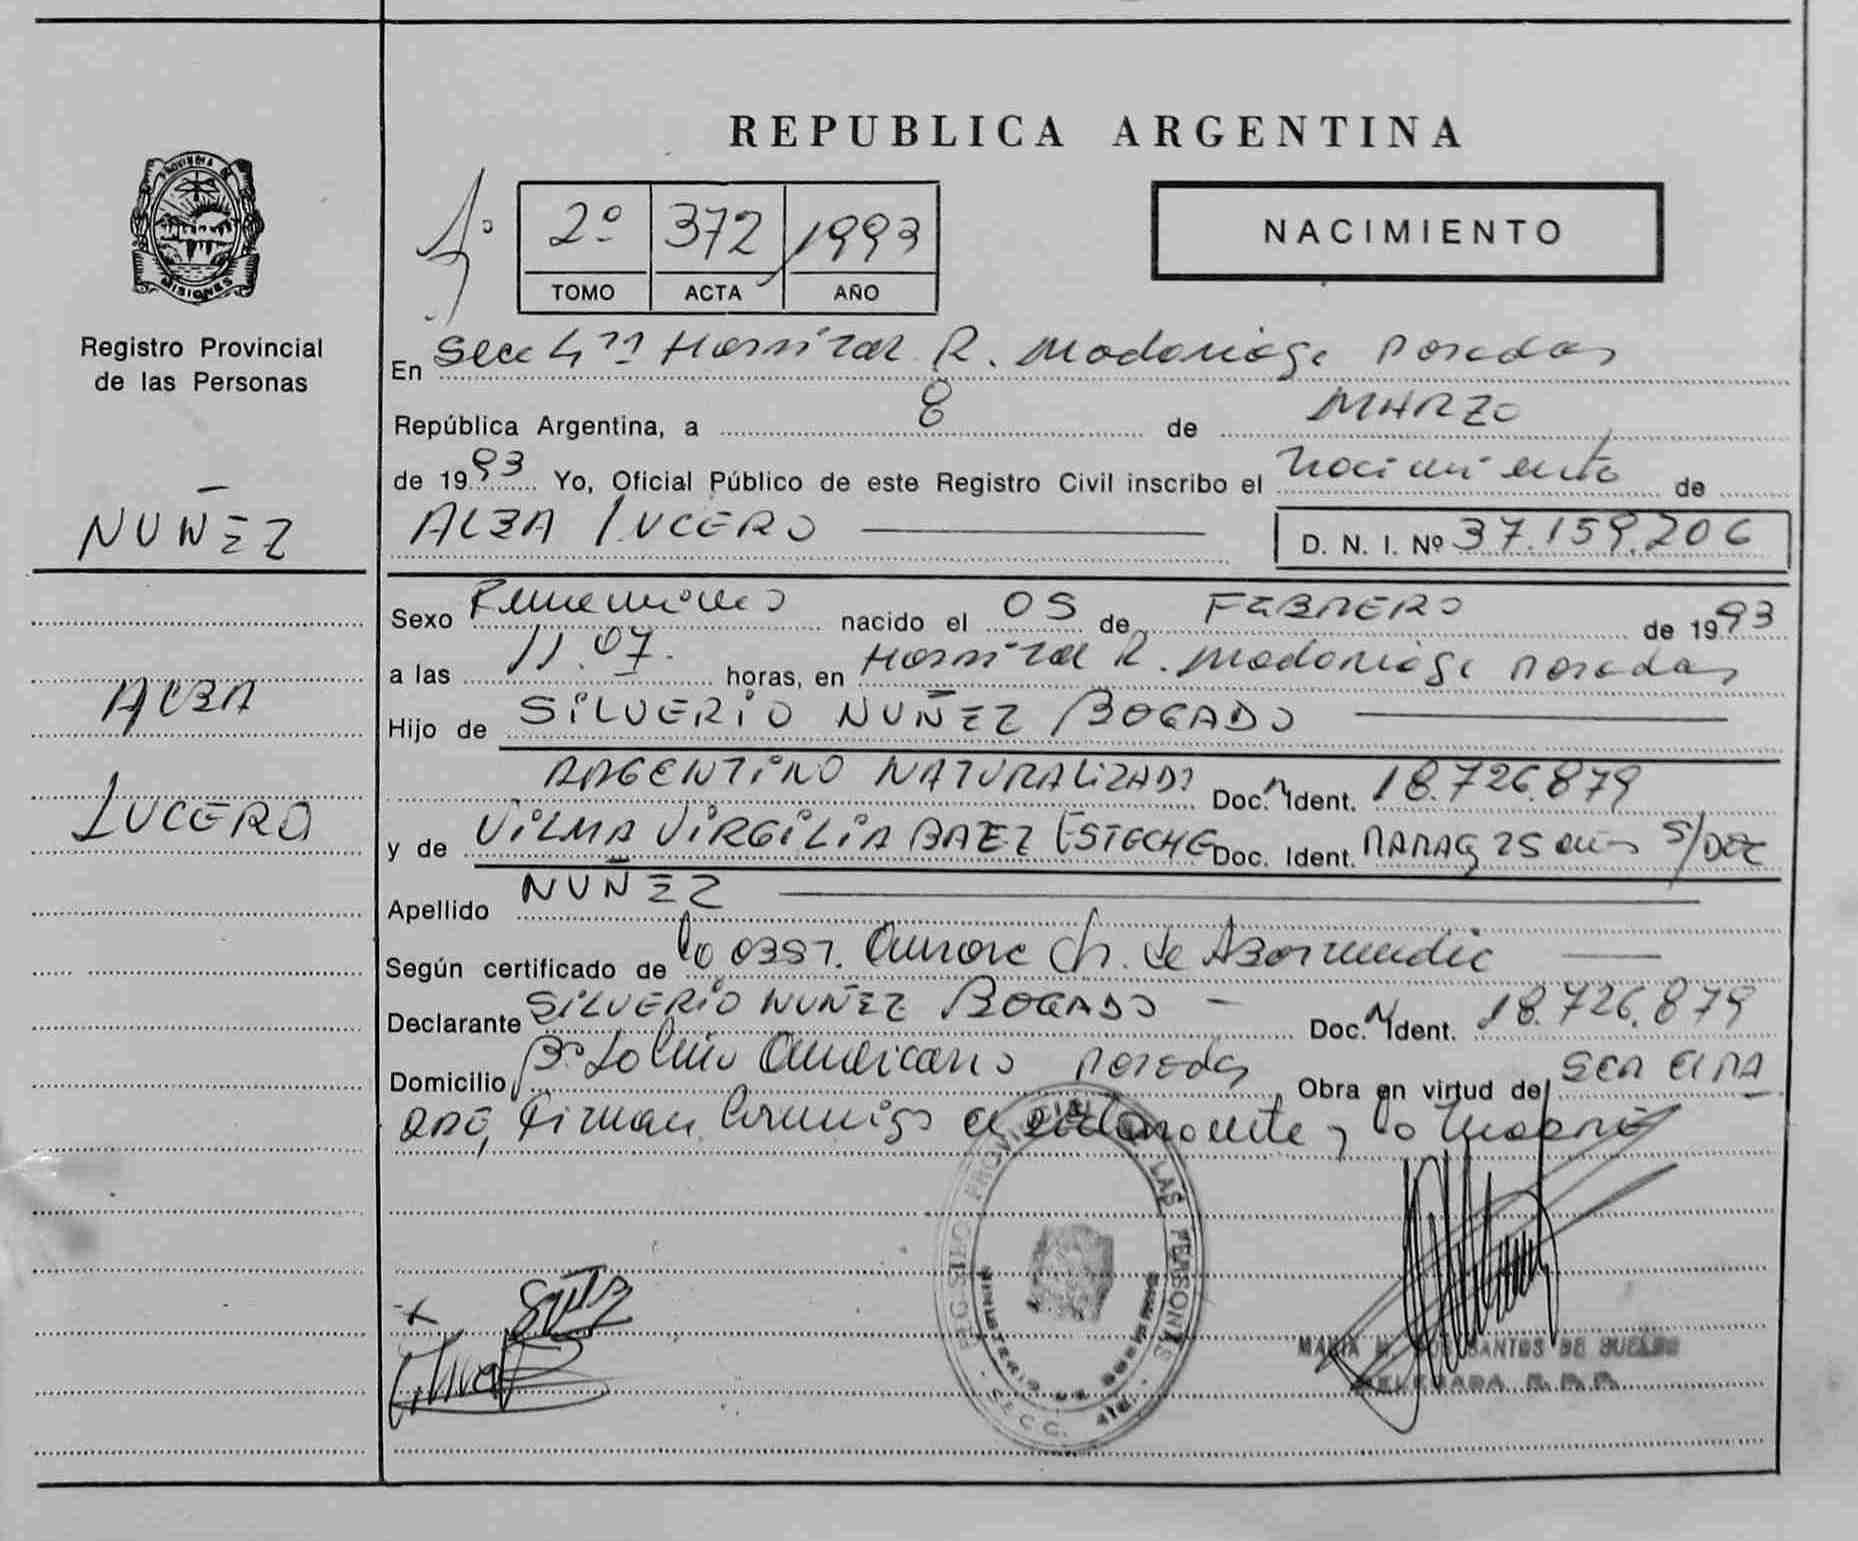 REPUBLICA ARGENTINA
PROVINCIA DE
MISIONES
Registro Provincial
de las Personas
NUÑEZ
ALBA
LUCERO
2º 372 1993
TOMO ACTA AÑO
NACIMIENTO
En Secc 4ta Hospital R. Madariaga Posadas
República Argentina, a 8 de MARZO
de 1993 Yo, Oficial Público de este Registro Civil inscribo el nacimiento de
ALBA LUCERO D. N. I. Nº 37.159.206
Sexo Femenino nacido el 05 de FEBRERO de 1993
a las 11.07. horas, en Hospital R. Madariaga Posadas
Hijo de SILVERIO NUÑEZ BOGADO
ARGENTINO NATURALIZADO Doc. N Ident. 18.726.879
y de VILMA VIRGILIA BAEZ ESTECHE Doc. Ident. PARAG 25 años S/DOC
Apellido NUÑEZ
Según certificado de la OBST. Aurora Ch. de
Declarante SILVERIO NUÑEZ BOGADO - Doc. N Ident. 18.726.879
Domicilio Bº Latino Americano Posadas Obra en virtud de SER EL PA
DRE, Firman conmigo el declarante y la madre
REGISTRO PROVINCIAL DE LAS PERSONAS
MINISTERIO DE GOBIERNO
SECC. 4ta.
MARIA M. DOS SANTOS DE SUELDO
DELEGADA R. P. P.